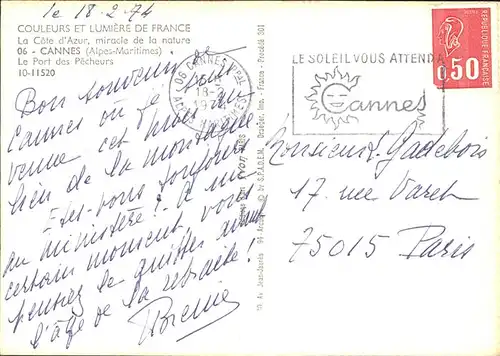 le 18.2.74
COULEURS ET LUMIÈRE DE FRANCE
La Côte d'Azur, miracle de la nature
06 - CANNES (Alpes-Maritimes)
Le Port des Pêcheurs
10-11520
Bon souvenir de
Cannes où je suis
venue cet hiver au
lieu de la montagne
Êtes-vous toujours
au ministère? À un
certain moment, vous
pensiez le quitter avant
l'âge de la retraite!
06 CANNES
18-2
LE SOLEIL VOUS ATTEND A
Cannes
REPUBLIQUE FRANÇAISE
0,50
Monsieur Gadebois
17 rue Varet
75015 Paris